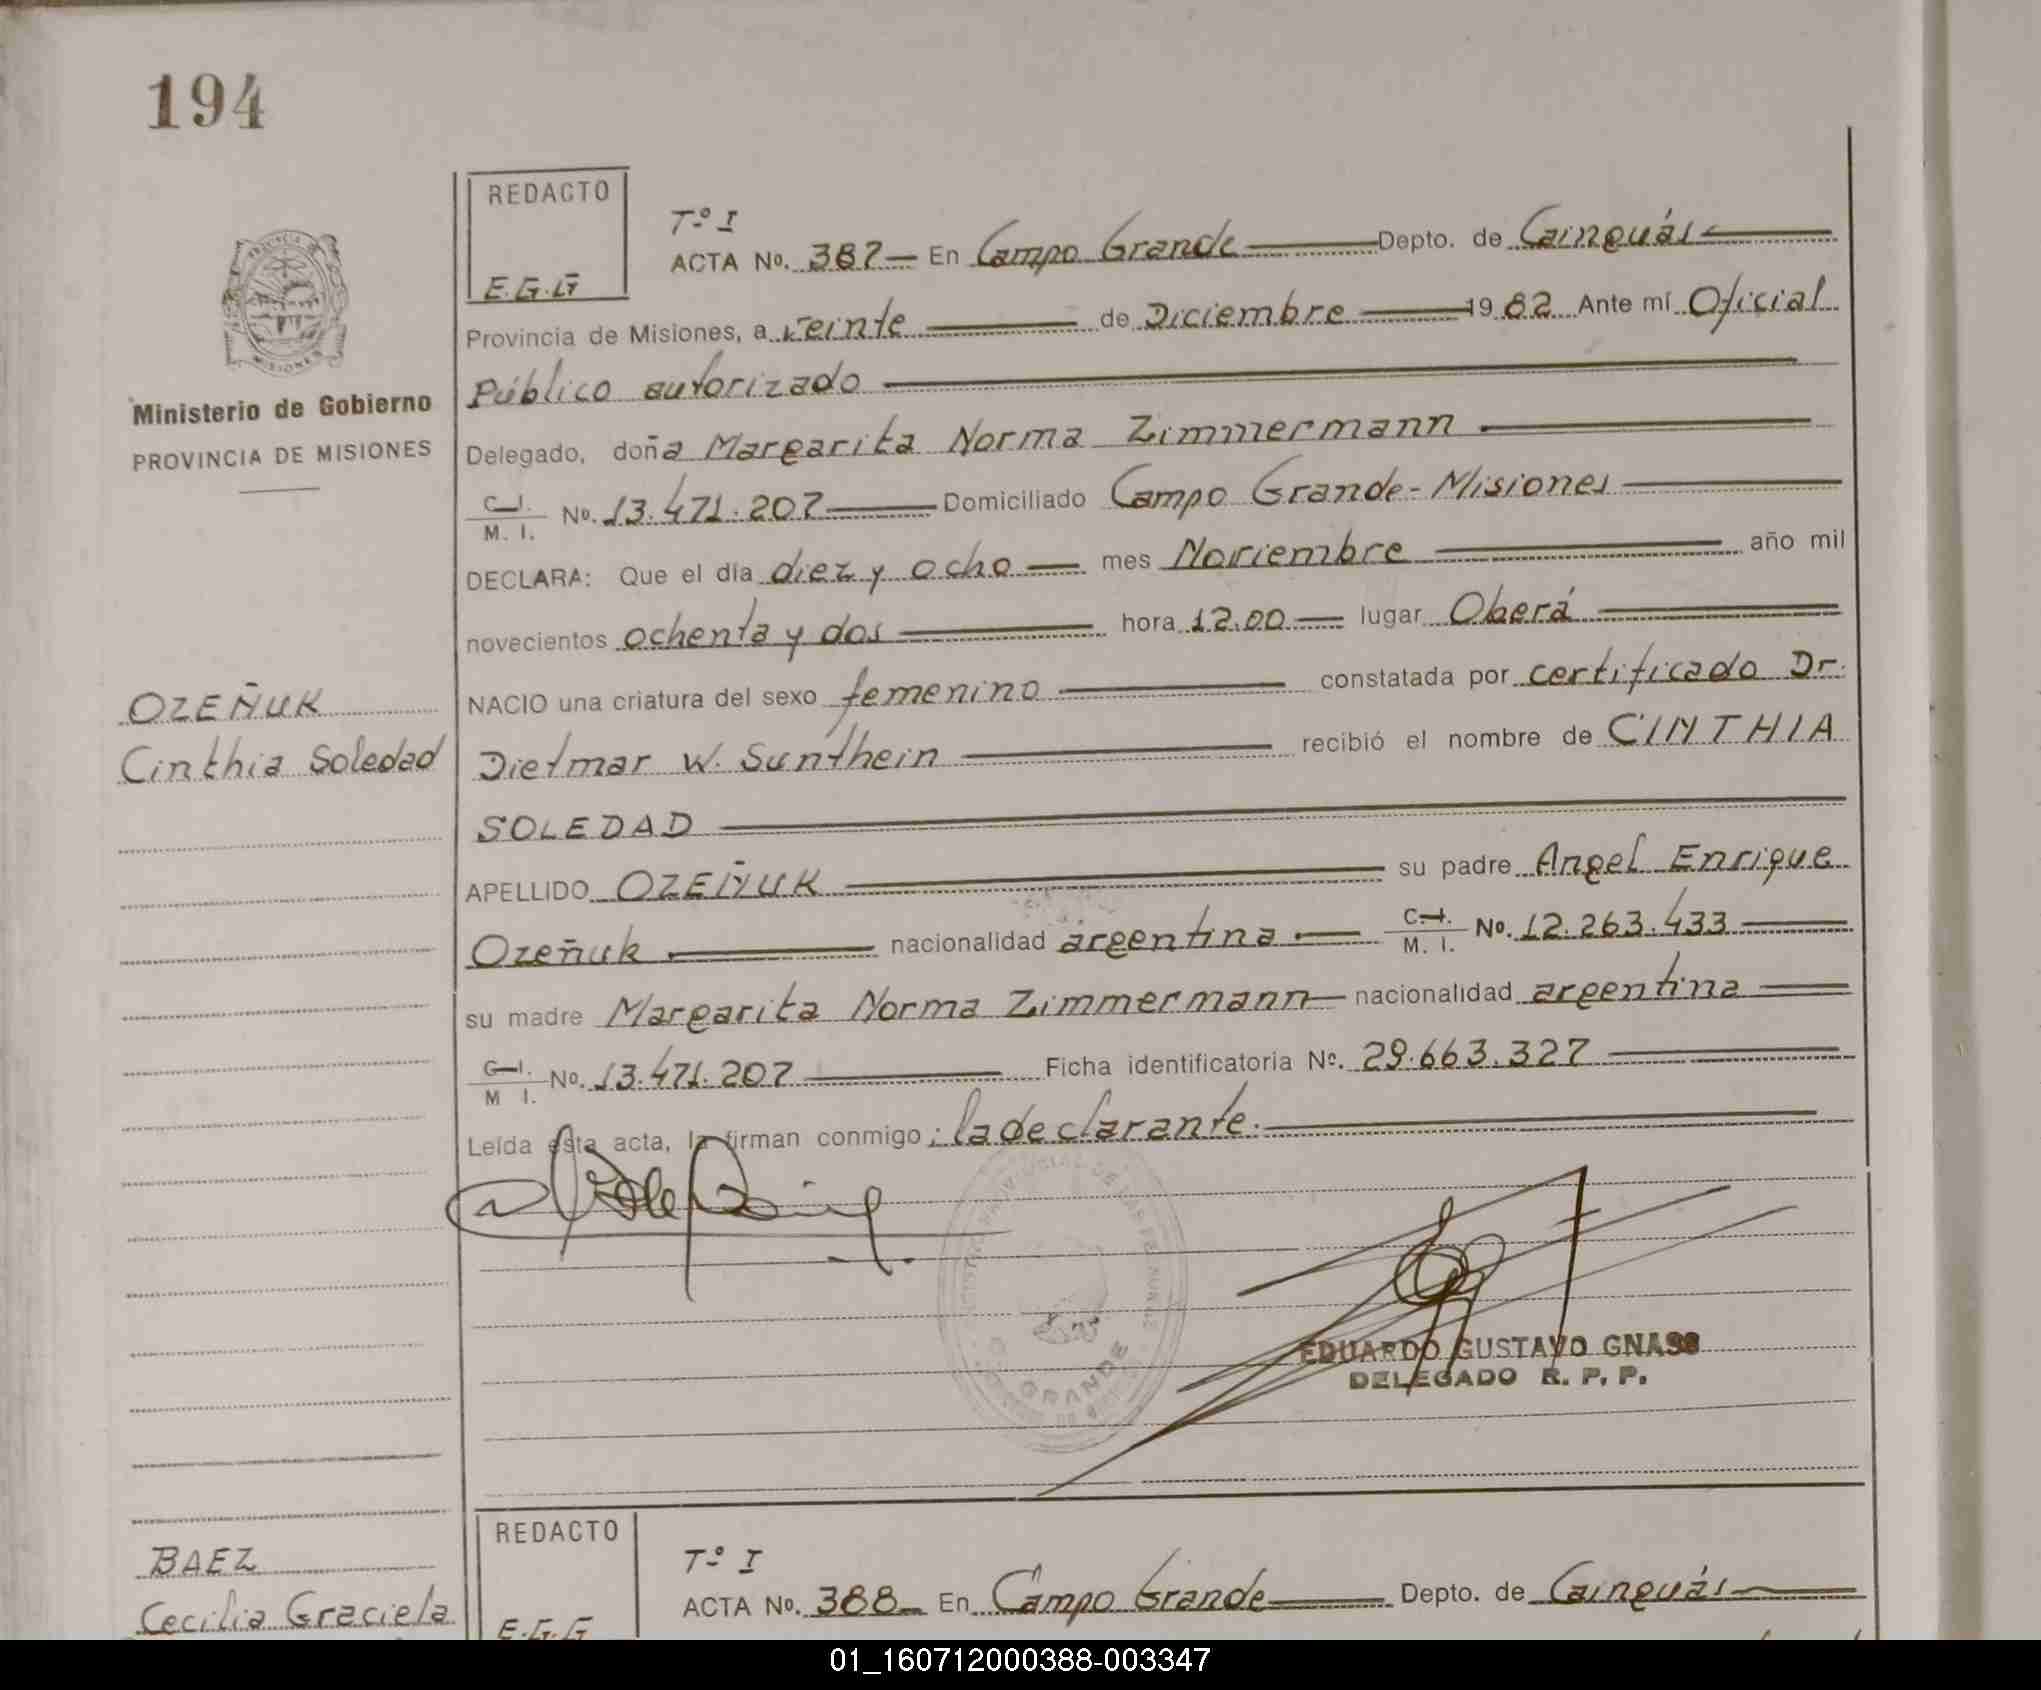 194
REDACTO
E.G.G
Tº I
ACTA Nº. 387 En Campo Grande Depto. de Cainguás
Provincia de Misiones, a veinte de Diciembre 1982 Ante mí Oficial
Público autorizado
Ministerio de Gobierno
PROVINCIA DE MISIONES
Delegado, doña Margarita Norma Zimmermann
C.I.
M. I. Nº. 13.471.207 Domiciliado Campo Grande - Misiones
DECLARA: Que el día diez y ocho mes Noviembre año mil
novecientos ochenta y dos hora 12.00 lugar Oberá
NACIO una criatura del sexo femenino constatada por certificado Dr.
OZEÑUK
Cinthia Soledad
Dietmar W. Sunthein recibió el nombre de CINTHIA
SOLEDAD
APELLIDO OZEÑUK su padre Angel Enrique
Ozeñuk nacionalidad argentina C.I. M. I. Nº. 12.263.433
su madre Margarita Norma Zimmermann nacionalidad argentina
C.I.
M I. Nº. 13.471.207 Ficha identificatoria Nº. 29.663.327
Leída ésta acta, la firman conmigo: la declarante.
GRANDE
EDUARDO GUSTAVO GNASS
DELEGADO R. P. P.
REDACTO
E.G.G
BAEZ
Cecilia Graciela
Tº I
ACTA Nº. 388 En Campo Grande Depto. de Cainguás
01_160712000388-003347